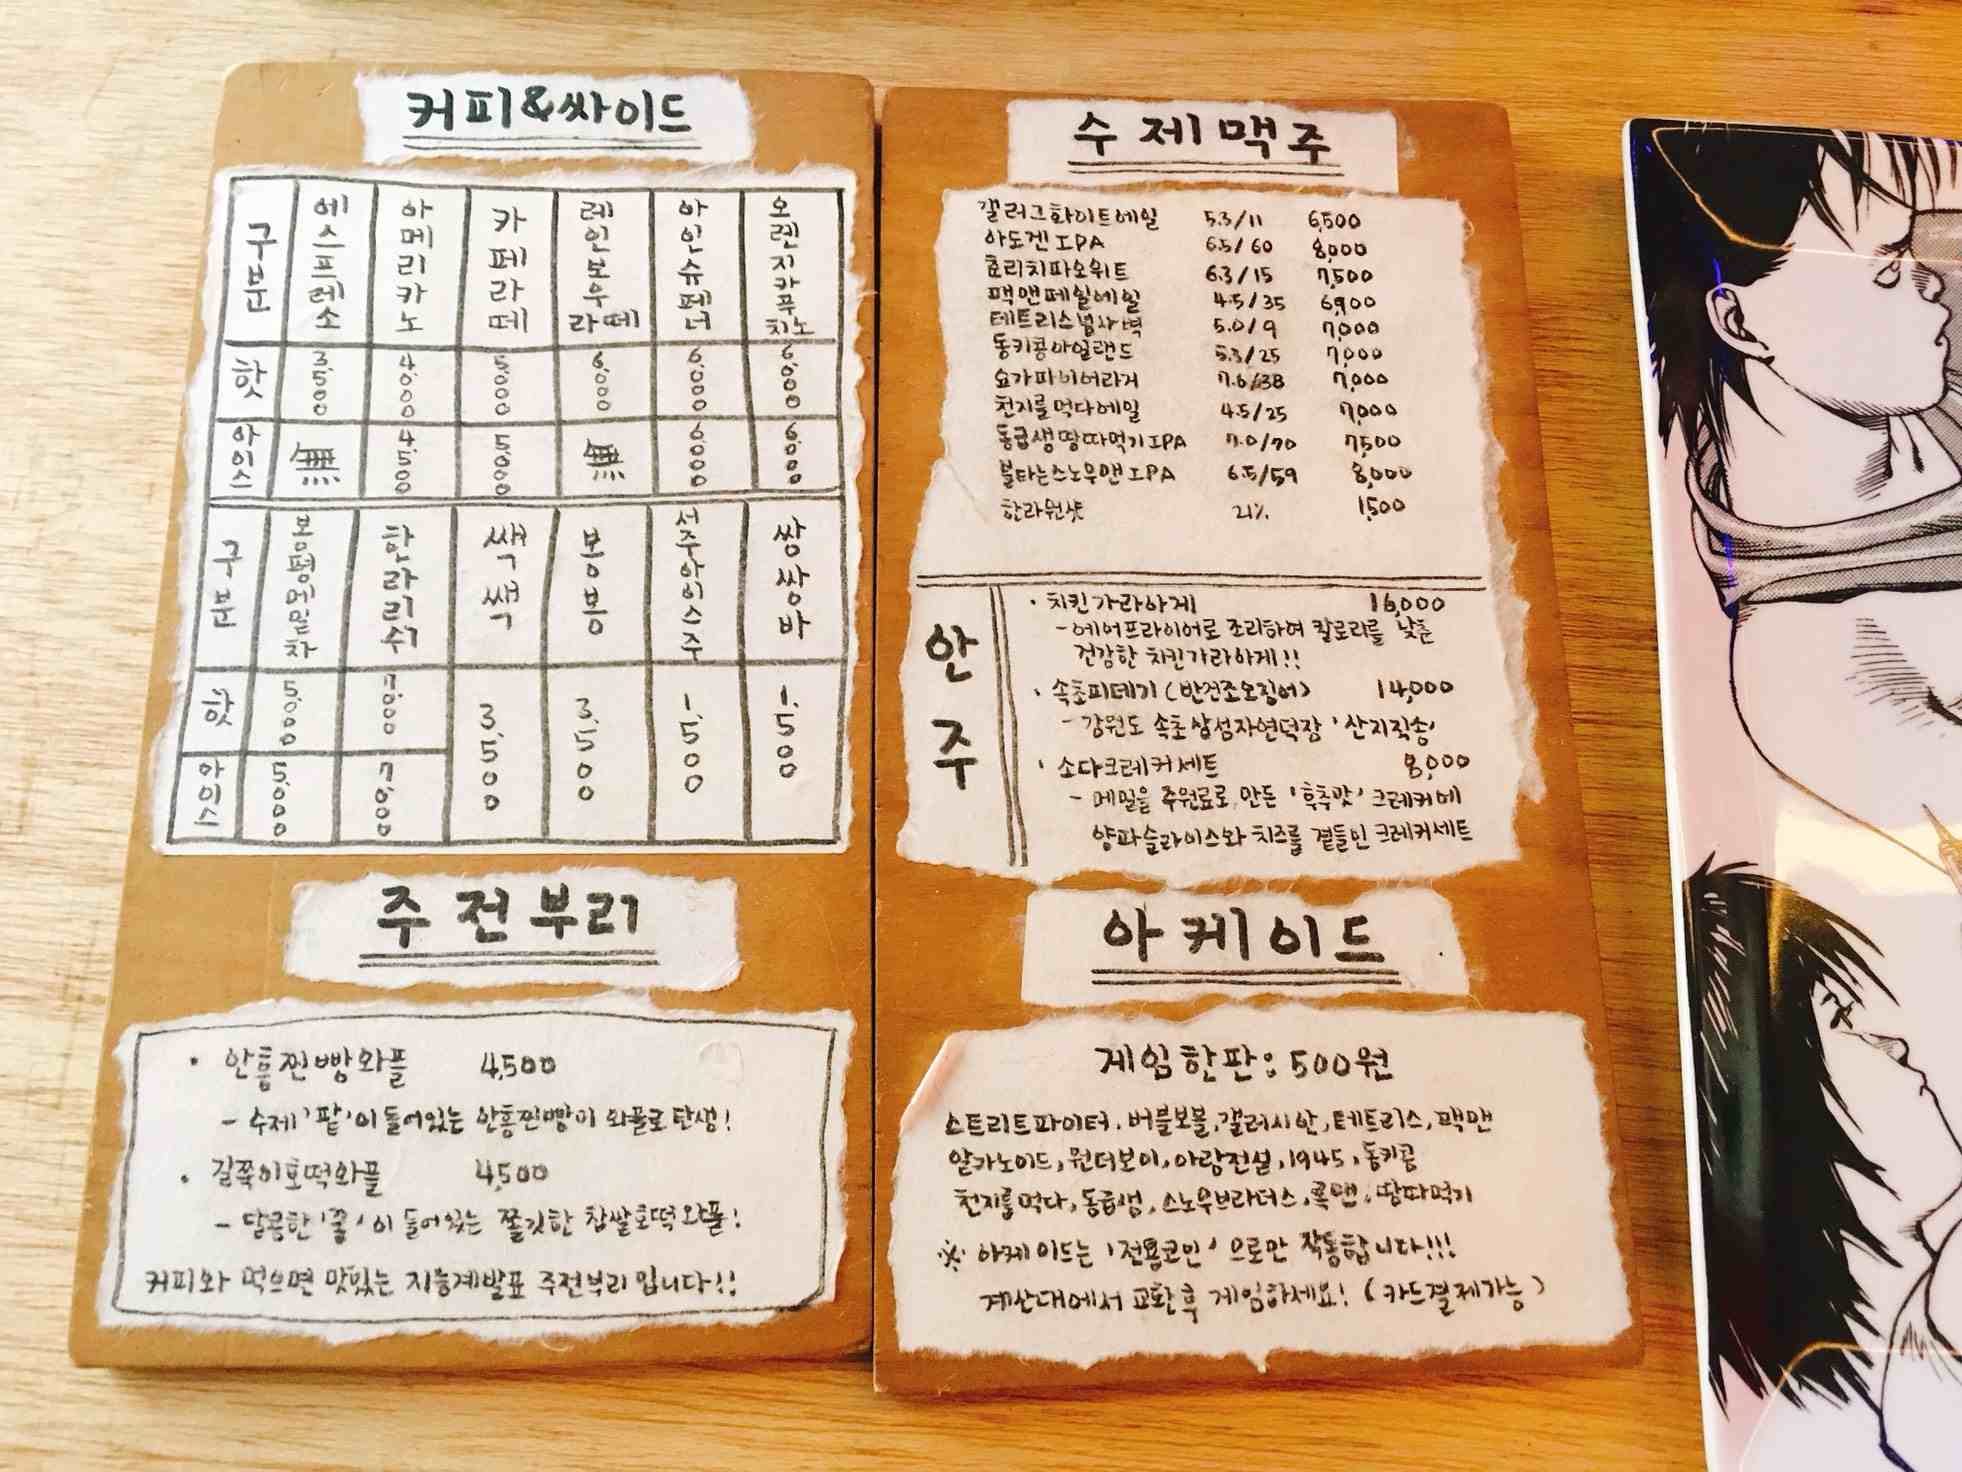 커피&싸이드
구분 에스프레소 아메리카노 카페라떼 레인보우라떼 아인슈페너 오렌지카푸치노
핫 3,500 4,000 5,000 6,000 6,000 6,000
아이스 無 4,500 5,000 無 6,000 6,000
구분 봉평메밀차 한라리수 쌕쌕 봉봉 서주아이스주 쌍쌍바
핫 5,000 7,000 3,500 3,500 1,500 1,500
아이스 5,000 7,000
주전부리
· 안흥찐빵와플 4,500
- 수제 '팥'이 들어있는 안흥찐빵이 와플로 탄생!
· 길쭉이호떡와플 4,500
- 달콤한 '꿀'이 들어있는 쫄깃한 찹쌀호떡와플!
커피와 먹으면 맛있는 지능계발표 주전부리입니다!!
수제맥주
갤러그화이트에일 5.3/11 6,500
아도겐IPA 6.5/60 8,000
쵸리치파오위트 6.3/15 7,500
팩맨페일에일 4.5/35 6,900
테트리스넘사벽 5.0/9 7,000
동키콩아일랜드 5.3/25 7,000
요가파이어라거 7.6/38 7,000
천지를먹다에일 4.5/25 7,000
동급생땅따먹기IPA 7.0/70 7,500
불타는스노우맨IPA 6.5/59 8,000
한라원샷 21% 1,500
안주
· 치킨가라아게 16,000
- 에어프라이어로 조리하여 칼로리를 낮춘
건강한 치킨가라아게!!
· 속초피데기(반건조오징어) 14,000
- 강원도 속초삼성자연덕장 '산지직송'
· 소다크레커세트 8,000
- 메밀을 주원료로 만든 '후추맛' 크레커에
양파슬라이스와 치즈를 곁들인 크레커세트
아케이드
게임한판: 500원
스트리트파이터, 버블보블, 갤러시안, 테트리스, 팩맨
알카노이드, 원더보이, 아랑전설, 1945, 동키콩
천지를먹다, 동급생, 스노우브라더스, 록맨, 땅따먹기
※ 아케이드는 '전용코인'으로만 작동합니다!!!
계산대에서 교환후 게임하세요! (카드결제가능)